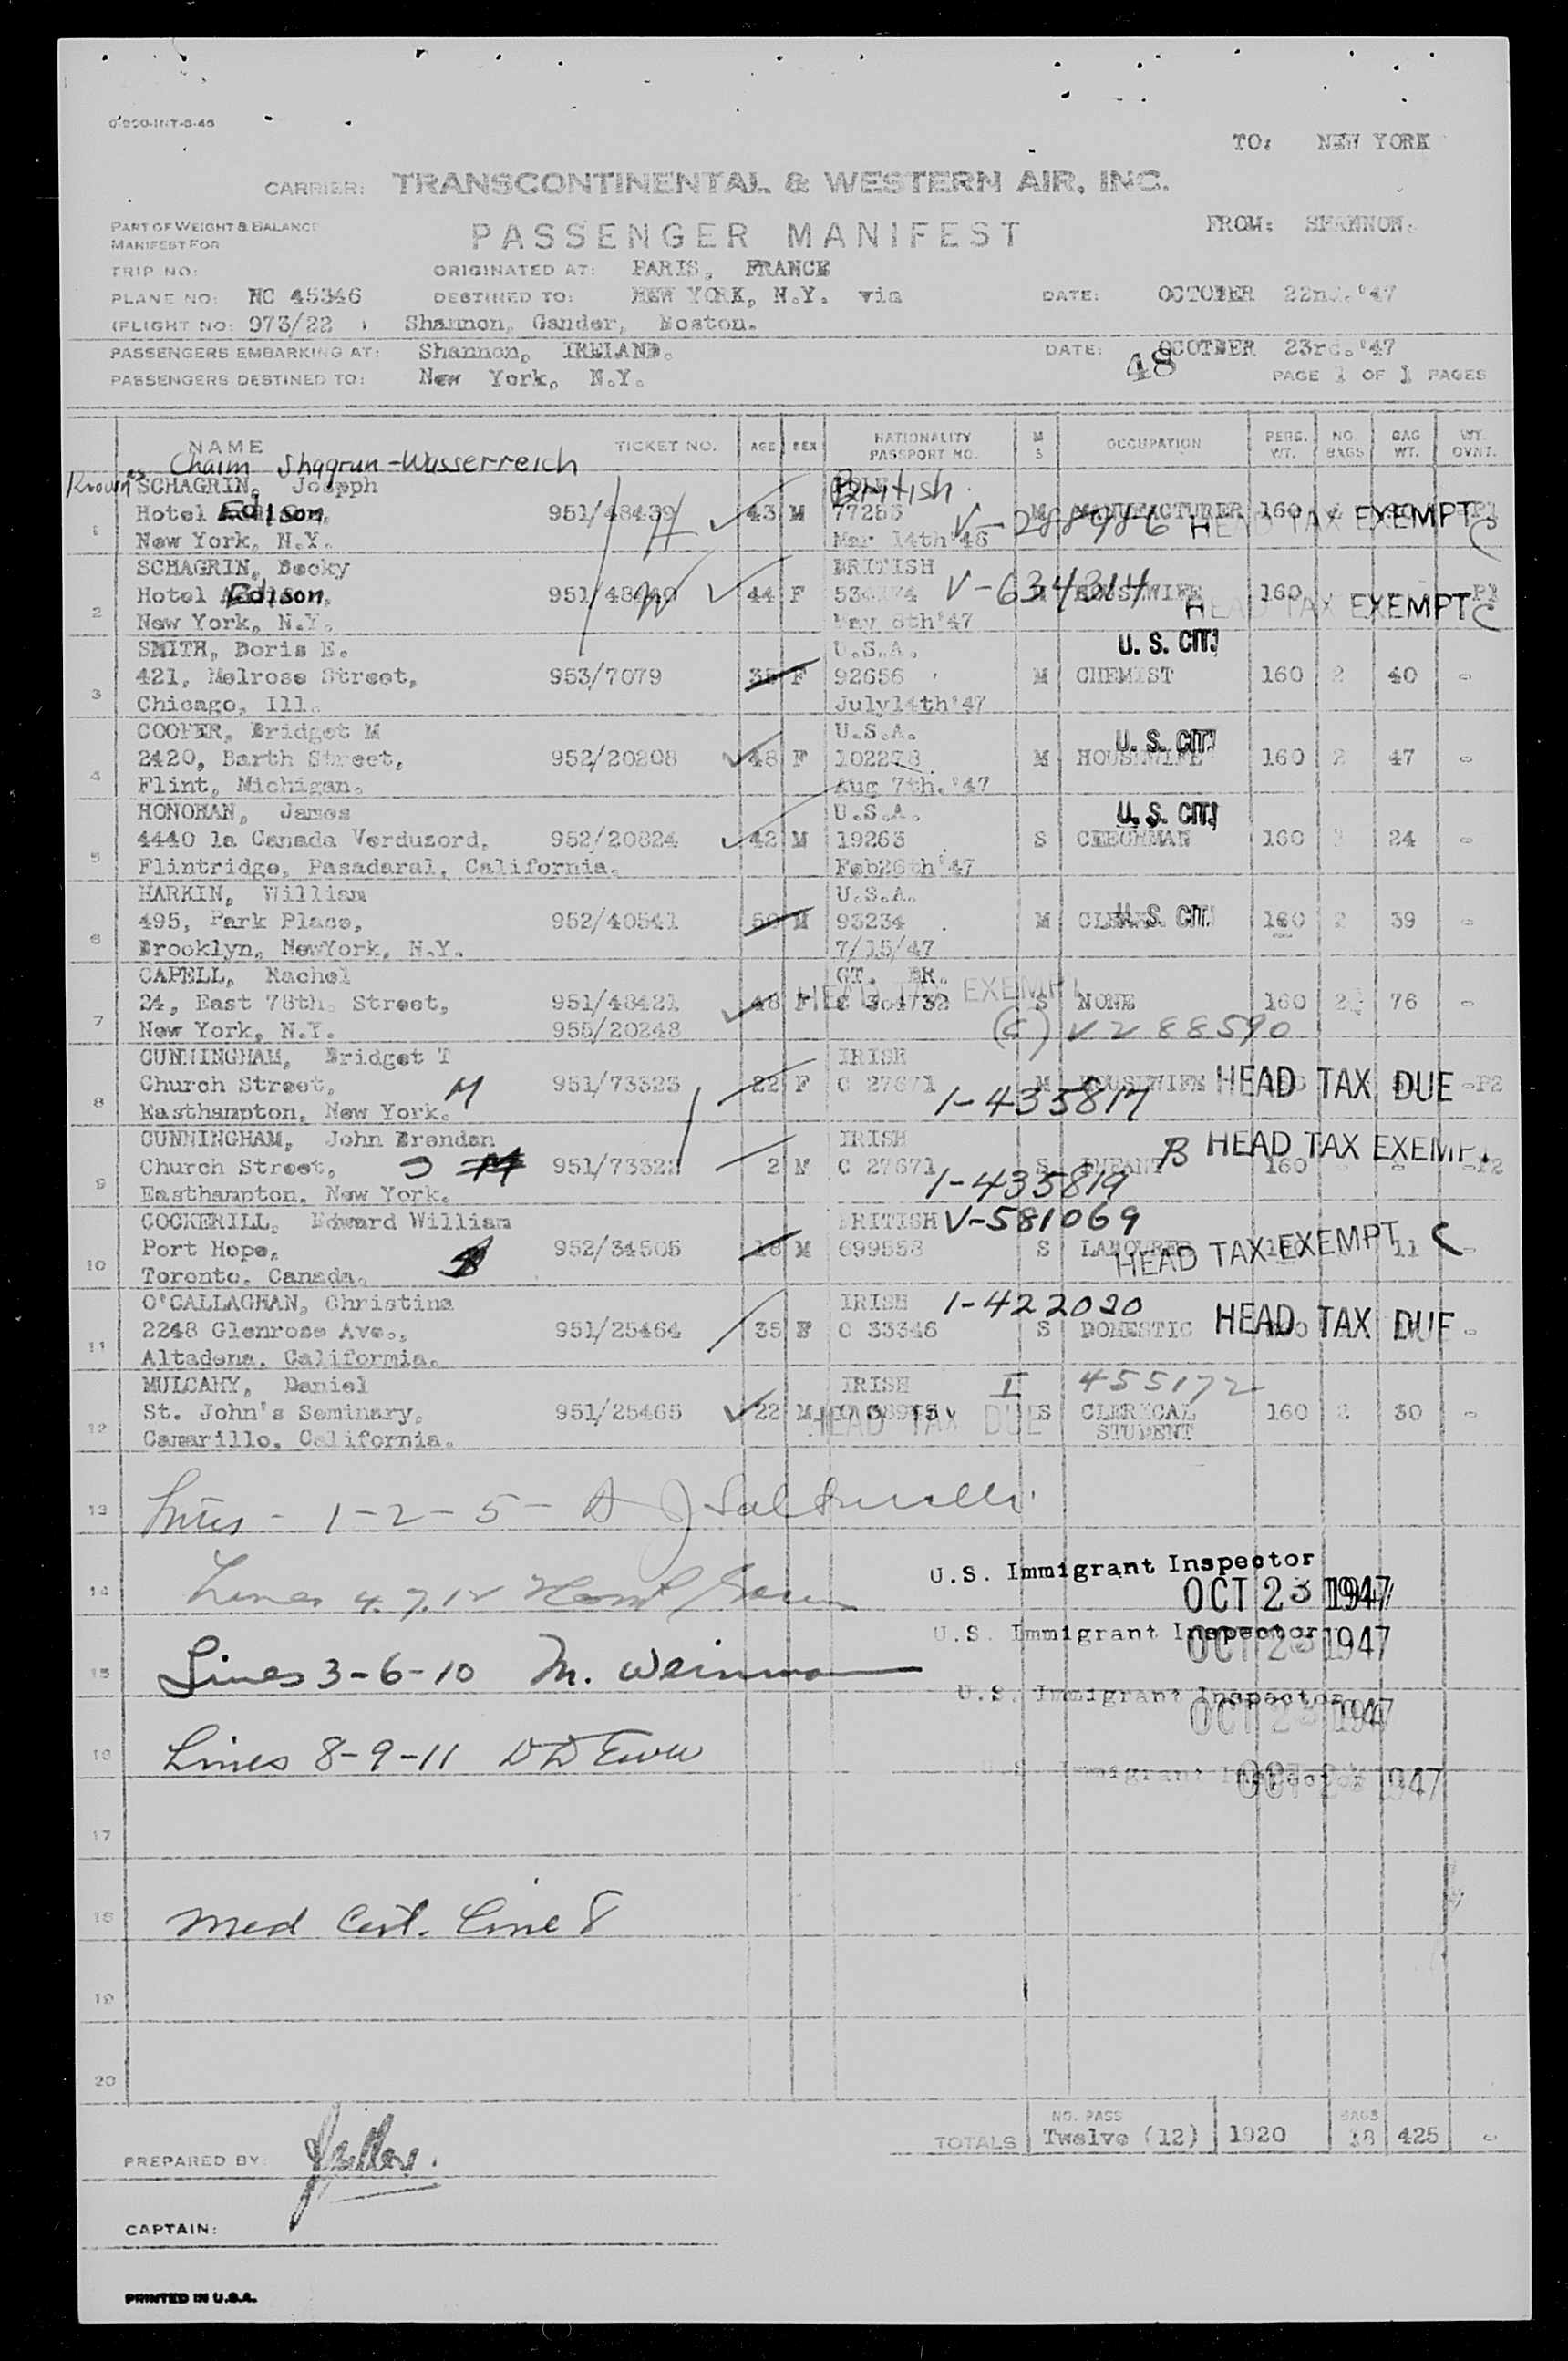 0 900-INT-8-46
TO: NEW YORK
CARRIER: TRANSCONTINENTAL & WESTERN AIR, INC.
PART OF WEIGHT & BALANCE
MANIFEST FOR
PASSENGER MANIFEST
FROM: SHANNON.
TRIP NO:
ORIGINATED AT: PARIS, FRANCE
PLANE NO: NC 45346
DESTINED TO: NEW YORK, N.Y. via
DATE: OCTOBER 22nd.'47
(FLIGHT NO: 973/22 ) Shannon, Gander, Boston.
PASSENGERS EMBARKING AT: Shannon, IRELAND.
DATE: OCOTBER 23rd.'47
48
PASSENGERS DESTINED TO: New York, N.Y.
PAGE 1 OF 1 PAGES
NAME TICKET NO. AGE SEX NATIONALITY PASSPORT NO. M S OCCUPATION PERS. WT. NO. BAGS BAG WT. WT. OVNT.
Chaim Shagrun-Wasserreich
Known as SCHAGRIN, Joseph British
1 Hotel Edison, 951/48439 43 M 77253 M MANUFACTURER 160 V-288986 HEAD TAX EXEMPT C
New York, N.Y. Mar 14th'46
SCHAGRIN, Becky BRITISH
2 Hotel Edison, 951/48440 44 F V-634314 HOUSEWIFE 160 HEAD TAX EXEMPT C
New York, N.Y. May 8th'47
SMITH, Doris E. U.S.A. U.S. CIT.
3 421, Melrose Street, 953/7079 35 F 92656 M CHEMIST 160 2 40 -
Chicago, Ill. July14th'47
COOPER, Bridget M U.S.A. U.S. CIT.
4 2420, Barth Street, 952/20208 48 F 102278 M HOUSEWIFE 160 2 47 -
Flint, Michigan. Aug 7th.'47
HONOHAN, James U.S.A. U.S. CIT.
5 4440 la Canada Verduzord, 952/20824 42 M 19263 S CLERGHMAN 160 24 -
Flintridge, Pasadaral, California. Feb26th'47
HARKIN, William U.S.A.
6 495, Park Place, 952/40541 50 M 93234 M U.S. CIT. 160 2 39 -
Brooklyn, NewYork, N.Y. 7/15/47
CAPELL, Rachel GT. BR.
7 24, East 78th. Street, 951/48421 48 F C 304732 HEAD TAX EXEMPT S NONE 160 2 76 -
New York, N.Y. 955/20248 (C) V288590
CUNNINGHAM, Bridget T IRISH
8 Church Street, M 951/73523 22 F C 27671 M HOUSEWIFE HEAD TAX DUE -P2
Easthampton, New York. 1-435817
CUNNINGHAM, John Brendan IRISH
9 Church Street, 951/73522 2 M C 27671 S INFANT B HEAD TAX EXEMPT 160 - -P2
Easthampton, New York. 1-435819
COCKERILL, Edward William BRITISH V-581069
10 Port Hope, 952/34505 18 M 699558 S LABOURER HEAD TAX EXEMPT 11 C -
Toronto, Canada.
O'CALLAGHAN, Christina IRISH 1-422020
11 2248 Glenrose Ave., 951/25464 35 F C 33346 S DOMESTIC HEAD TAX DUE -
Altadena, California.
MULCAHY, Daniel IRISH I 455172
12 St. John's Seminary, 951/25465 22 M HEAD TAX DUE S CLERICAL 160 2 30 -
Camarillo, California. STUDENT
13 Lines - 1-2-5-
14 Lines 4.7.12 U.S. Immigrant Inspector
OCT 23 1947
U.S. Immigrant Inspector
OCT 23 1947
15 Lines 3-6-10 M. Weinman
U.S. Immigrant Inspector
OCT 23 1947
16 Lines 8-9-11
U.S. Immigrant Inspector
OCT 23 1947
17
18 Med Cert. Line 8
19
20
NO. PASS BAGS
TOTALS Twelve (12) 1920 18 425 -
PREPARED BY:
CAPTAIN:
PRINTED IN U.S.A.